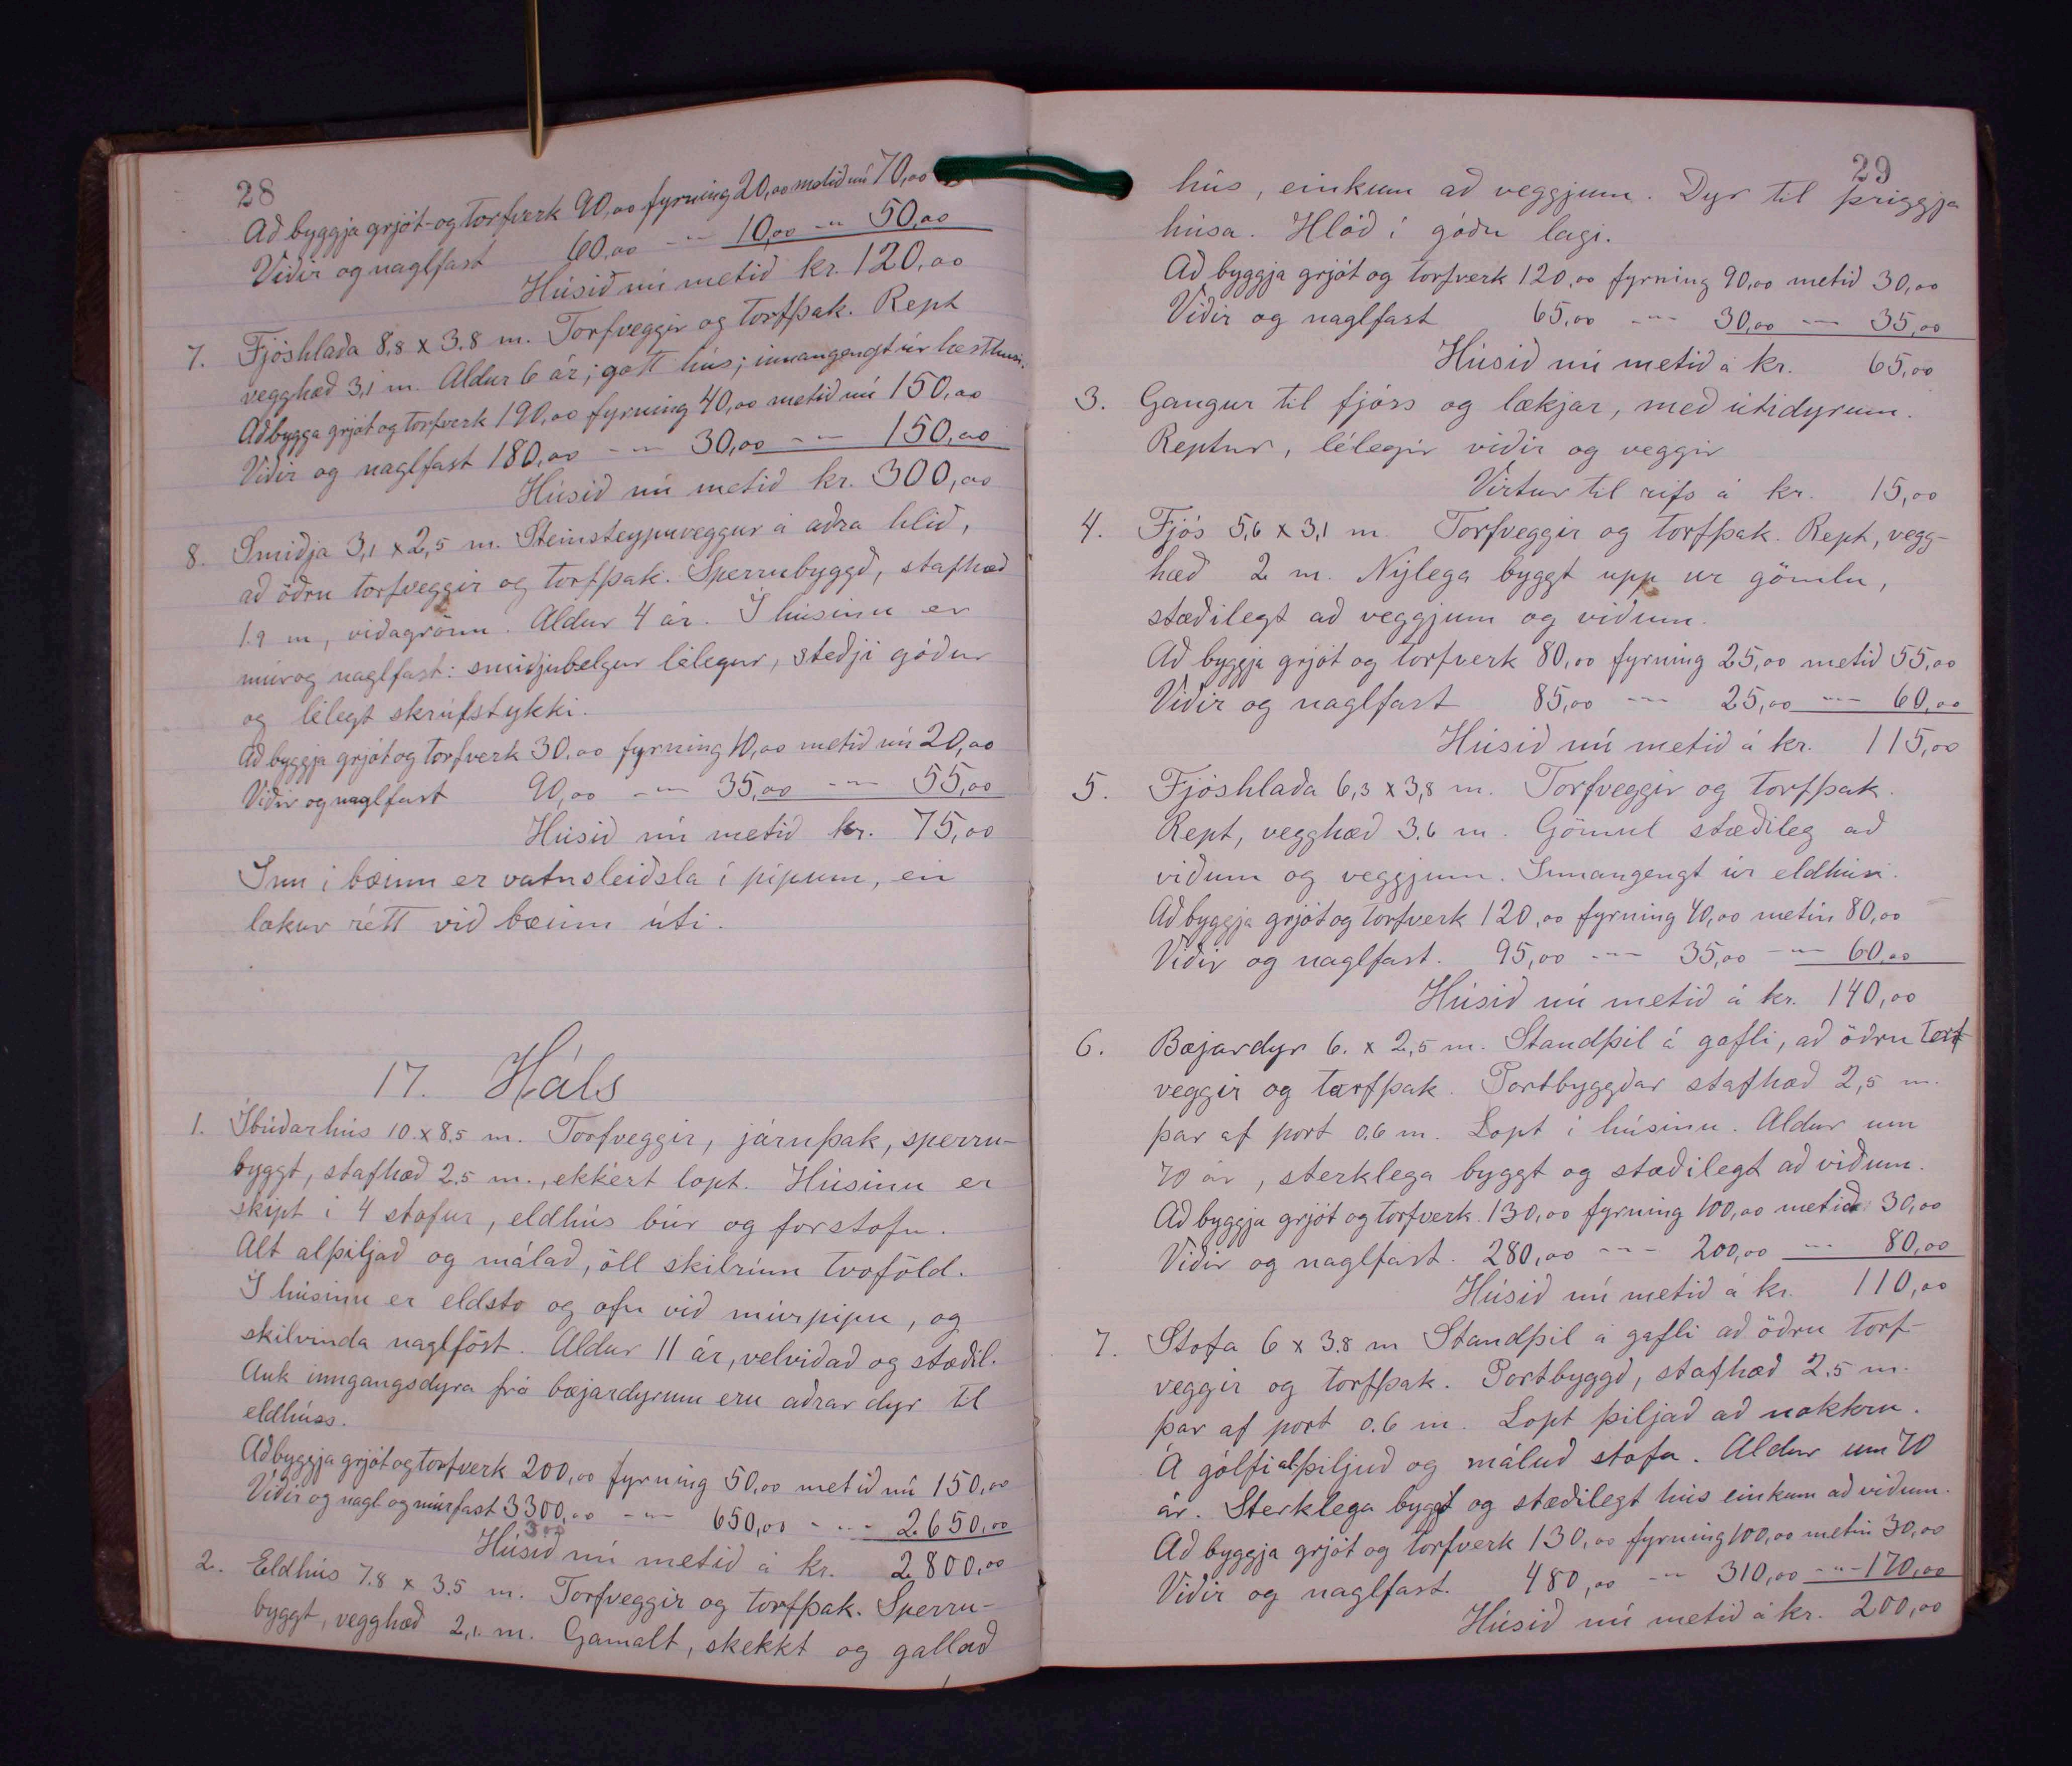 28
Að byggja grjót- og torfverk 90,00 fyrning 20,00 metið nú 70,00
Viðir og naglfast 60,00 -"- 10,00 -"- 50,00
Húsið nú metið kr. 120,00
7. Fjóshlaða 8,8 x 3.8 m. Torfveggir og torfþak. Rept
vegghæð 3,1 m. Aldur 6 ár; gott hús; innangengt úr hesthúsi.
Að bygga grjót og torfverk 190,00 fyrning 40,00 metið nú 150,00
Viðir og naglfast 180,00 -"- 30,00 -"- 150,00
Húsið nú metið kr. 300,00
8. Smiðja 3,1 x 2,5 m. Steinsteypuveggur á aðra hlið,
að öðru torfveggir og torfþak. Sperrubyggð, stafhæð
1.9 m, viðagrönn. Aldur 4 ár. Í húsinu er
múr og naglfast: smiðjubelgur lélegur, steðji góður
og lélegt skrúfstykki.
Að byggja grjót og torfverk 30.00 fyrning 10,00 metið nú 20,00
Viðir og naglfast 90,00 -"- 35,00 -"- 55,00
Húsið nú metið kr. 75,00
Inn í bæinn er vatnsleiðsla í pípum, en
lækur rétt við bæinn úti.
17. Háls
1. Íbúðarhús 10. x 8.5 m. Torfveggir, járnþak, sperru-
byggt, stafhæð 2.5 m., ekkert lopt. Húsinu er
skipt í 4 stofur, eldhús búr og forstofu.
Alt alþiljað og málað, öll skilrúm tvöföld.
Í húsinu er eldstó og ofn við múrpípu, og
skilvinda naglföst. Aldur 11 ár, velviðað og stæðil.
Auk inngangsdyra frá bæjardyrum eru aðrar dyr til
eldhúss.
Að byggja grjót og torfverk 200,00 fyrning 50,00 metið nú 150,00
Viðir og nagl og múrfast 3300,00 -"- 650,00 -"- 2650,00
Húsið nú metið á kr. 2800,00
2. Eldhús 7.8 x 3.5 m. Torfveggir og torfþak. Sperru-
byggt, vegghæð 2,1. m. Gamalt, skekkt og gallað
29
hús, einkum að veggjum. Dyr til þriggja
húsa. Hlóð í góðu lagi.
Að byggja grjót og torfverk 120,00 fyrning 90,00 metið 30,00
Viðir og naglfast 65,00 -"- 30,00 -"- 35,00
Húsið nú metið á kr. 65,00
3. Gangur til fjóss og lækjar, með útidyrum.
Reptur, lélegir viðir og veggir
Virtur til rifs á kr. 15,00
4. Fjós 5,6 x 3,1 m. Torfveggir og torfþak. Rept, vegg-
hæð 2 m. Nýlega byggt upp ur gömlu,
stæðilegt að veggjum og viðum.
Að byggja grjót og torfverk 80,00 fyrning 25,00 metið 55,00
Viðir og naglfast 85,00 -"- 25,00 -"- 60,00
Húsið nú metið á kr. 115,00
5. Fjóshlaða 6,3 x 3,8 m. Torfveggir og torfþak.
Rept, vegghæð 3.6 m. Gömul stæðileg að
viðum og veggjum. Innangengt úr eldhúsi.
Að byggja grjót og torfverk 120,00 fyrning 40,00 metin 80,00
Viðir og naglfast. 95,00 -"- 35,00 -"- 60,00
Húsið nú metið á kr. 140,00
6. Bæjardyr 6. x 2,5 m. Standþil á gafli, að öðru torf
veggir og torfþak. Portbyggðar stafhæð 2,5 m.
þar af port 0.6 m. Lopt í húsinu. Aldur um
70 ár, sterklega byggt og stæðilegt að viðum.
Að byggja grjót og torfverk. 130,00 fyrning 100,00 metið 30,00
Viðir og naglfast. 280,00 -"- 200,00 -"- 80,00
Húsið nú metið á kr. 110,00
7. Stofa 6 x 3.8 m Standþil á gafli að öðru torf-
veggir og torfþak. Portbyggð, stafhæð 2.5 m.
þar af port 0.6 m. Lopt þiljað að nokkru.
Á gólfi alþiljuð og máluð stofa. Aldur um 70
ár. Sterklega byggt og stæðilegt hús einkum að viðum.
Að byggja grjót og torfverk 130,00 fyrning 100,00 metin 30,00
Viðir og naglfast. 480,00 -"- 310,00 -"- 170,00
Húsið nú metið á kr. 200,00